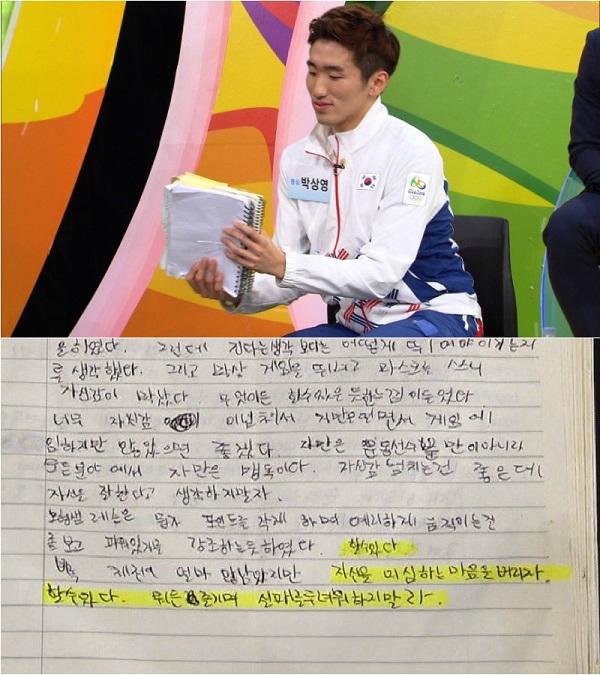 펜싱 박상영
을 하였다. 그런데 진다는생각 보다는 어떻게 뛰어야 이기는지
를 생각했다. 그리고 막상 게임을 뛰니고 마스크를 쓰니
자신감이 났다. 무엇이든 할수있을 듯하는 기분이 들었다
너무 자신감 이 넘쳐서 자만우
임하지만 않았으면 좋겠다. 자만은 운동선수 뿐만이아니라
모든분야 에서 자만은 맹독이다. 자신감 넘치는건 좋은데
자신을 잘한다고 생각하지말자.
레슨은 포인트를 하며 예리하게 움직이는건
좀보고 파워있게를 강조하는듯하였다. 할수있다
체전이 얼마 안남았지만 자신을 의심하는 마음을 버리자
할수있다. 뭐든 즐기며 실패를 두려워하지말라.